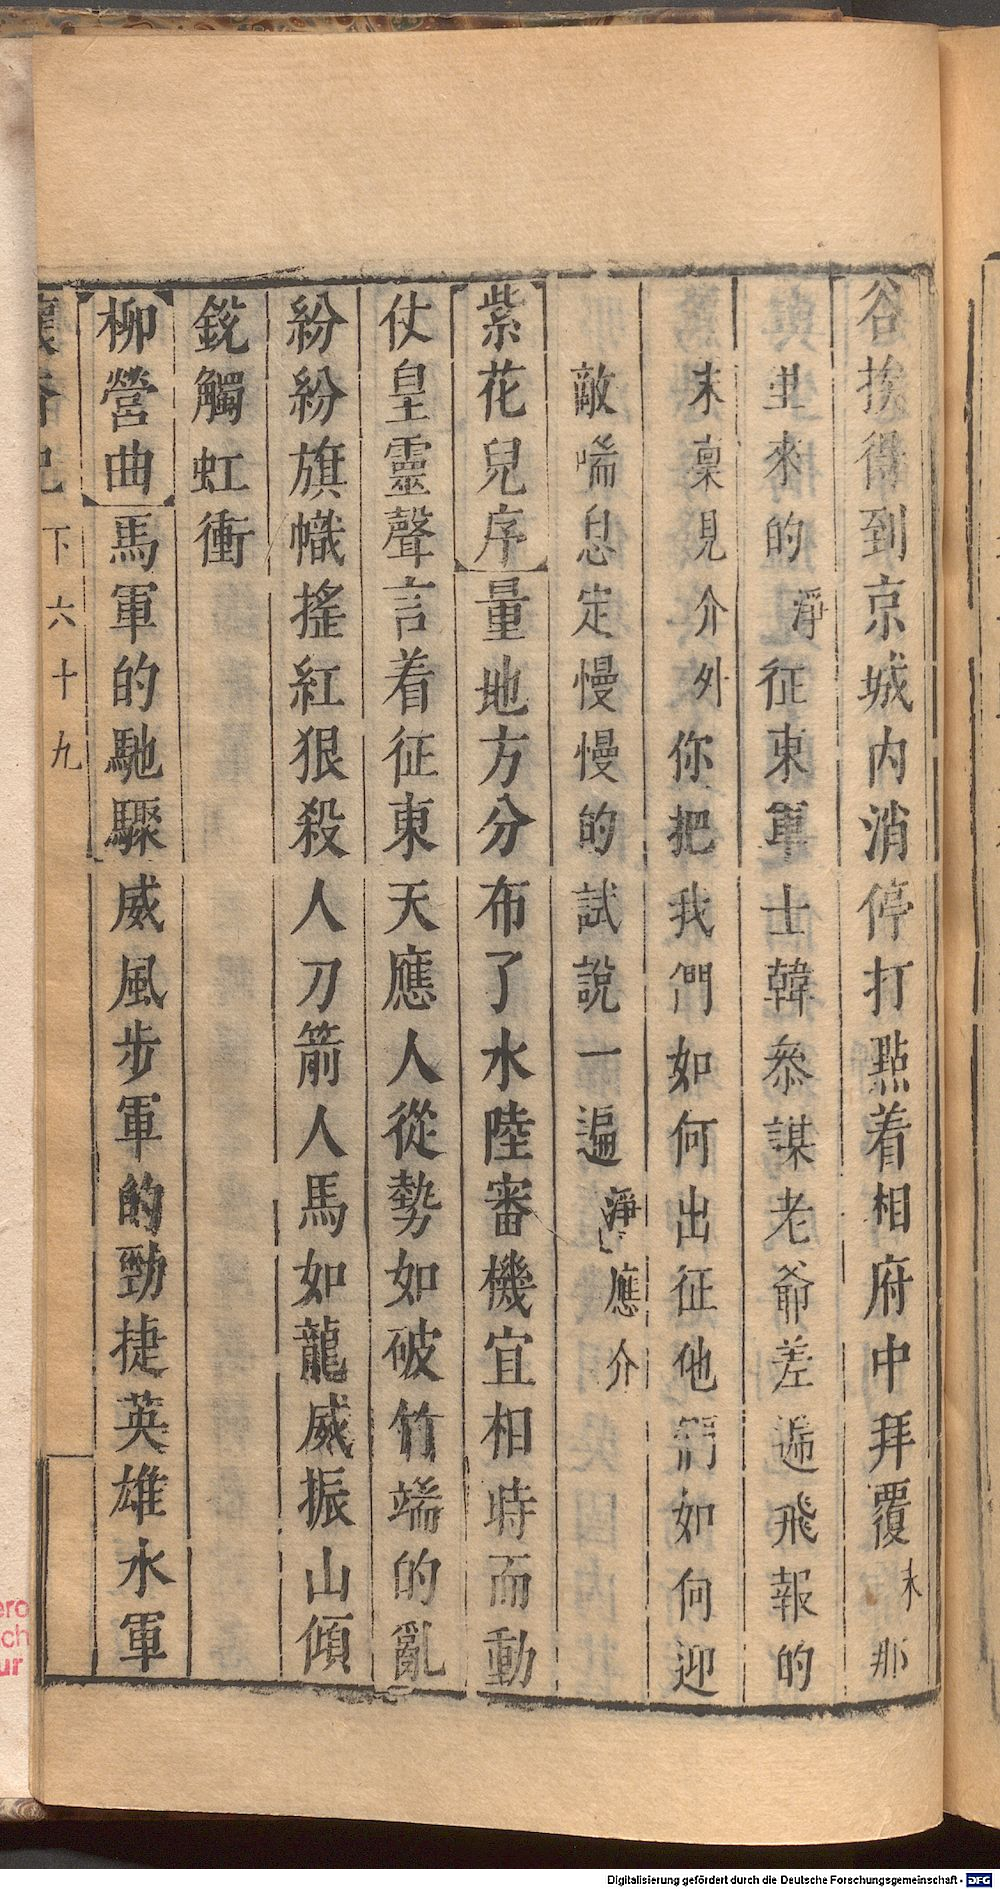 谷挨得到京城內消停打㸃着相府中拜覆末那
𨑳來的淨征東軍士韓叅謀老爺差遞飛報的
末稟見介外你把我們如何出征他們如何迎
敵喘息定慢慢的試說一遍淨應介
紫花兒序量地方分布了水陸審機宜相時而動
仗皇靈聲言着征東天應人從勢如破竹端的亂
紛紛旗幟搖紅狠殺人刀箭人馬如龍威振山傾
銳觸虹衝
柳營曲馬軍的馳驟威風步軍的勁捷英雄水軍
下六十九
Digitalisierung gefördert durch die Deutsche Forschungsgemeinschaft - DFG